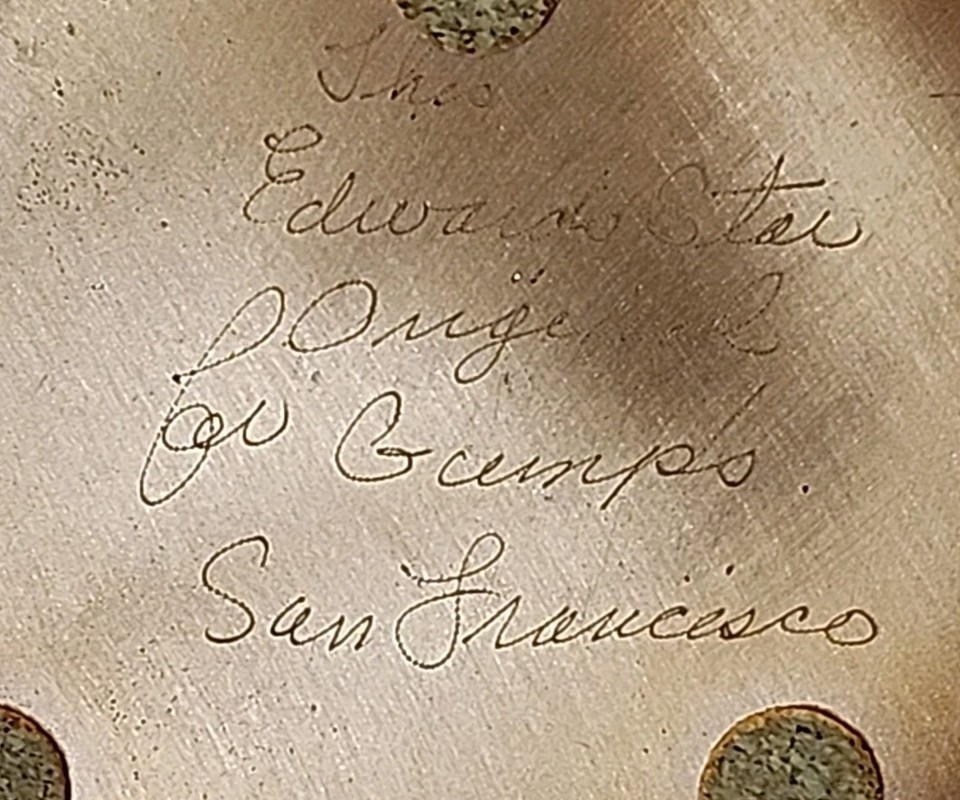 The
Edward Star
Original
for Gump's.
San Francisco